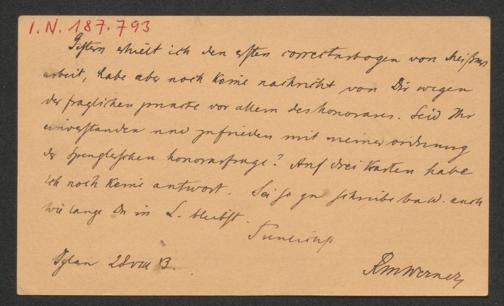 I.N. 187.793
Gestern erhielt ich den ersten correcturbogen von Meißners
arbeit, habe aber noch keine nachricht von Dir wegen
der fraglichen puncte vor allem des honorares. Seid Ihr
einverstanden und zufrieden mit meiner ordnung
der Spenglerschen honorarfrage? Auf drei Karten habe
ich noch keine antwort. Sei so gut schreibe bald. auch
wie lange Du in L. bleibst.
Iglau 28 VIII 83.
RMWerner